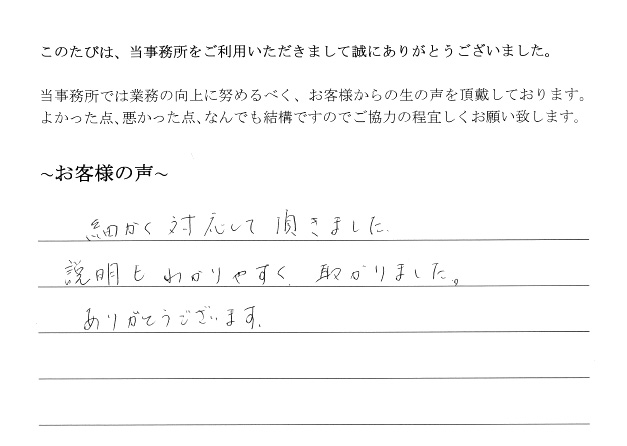 このたびは、当事務所をご利用いただきまして誠にありがとうございました。
当事務所では業務の向上に努めるべく、お客様からの生の声を頂戴しております。
よかった点、悪かった点、なんでも結構ですのでご協力の程宜しくお願い致します。
~お客様の声~
細かく対応して頂きました.
説明もわかりやすく、取かりました。
ありがとうございます.